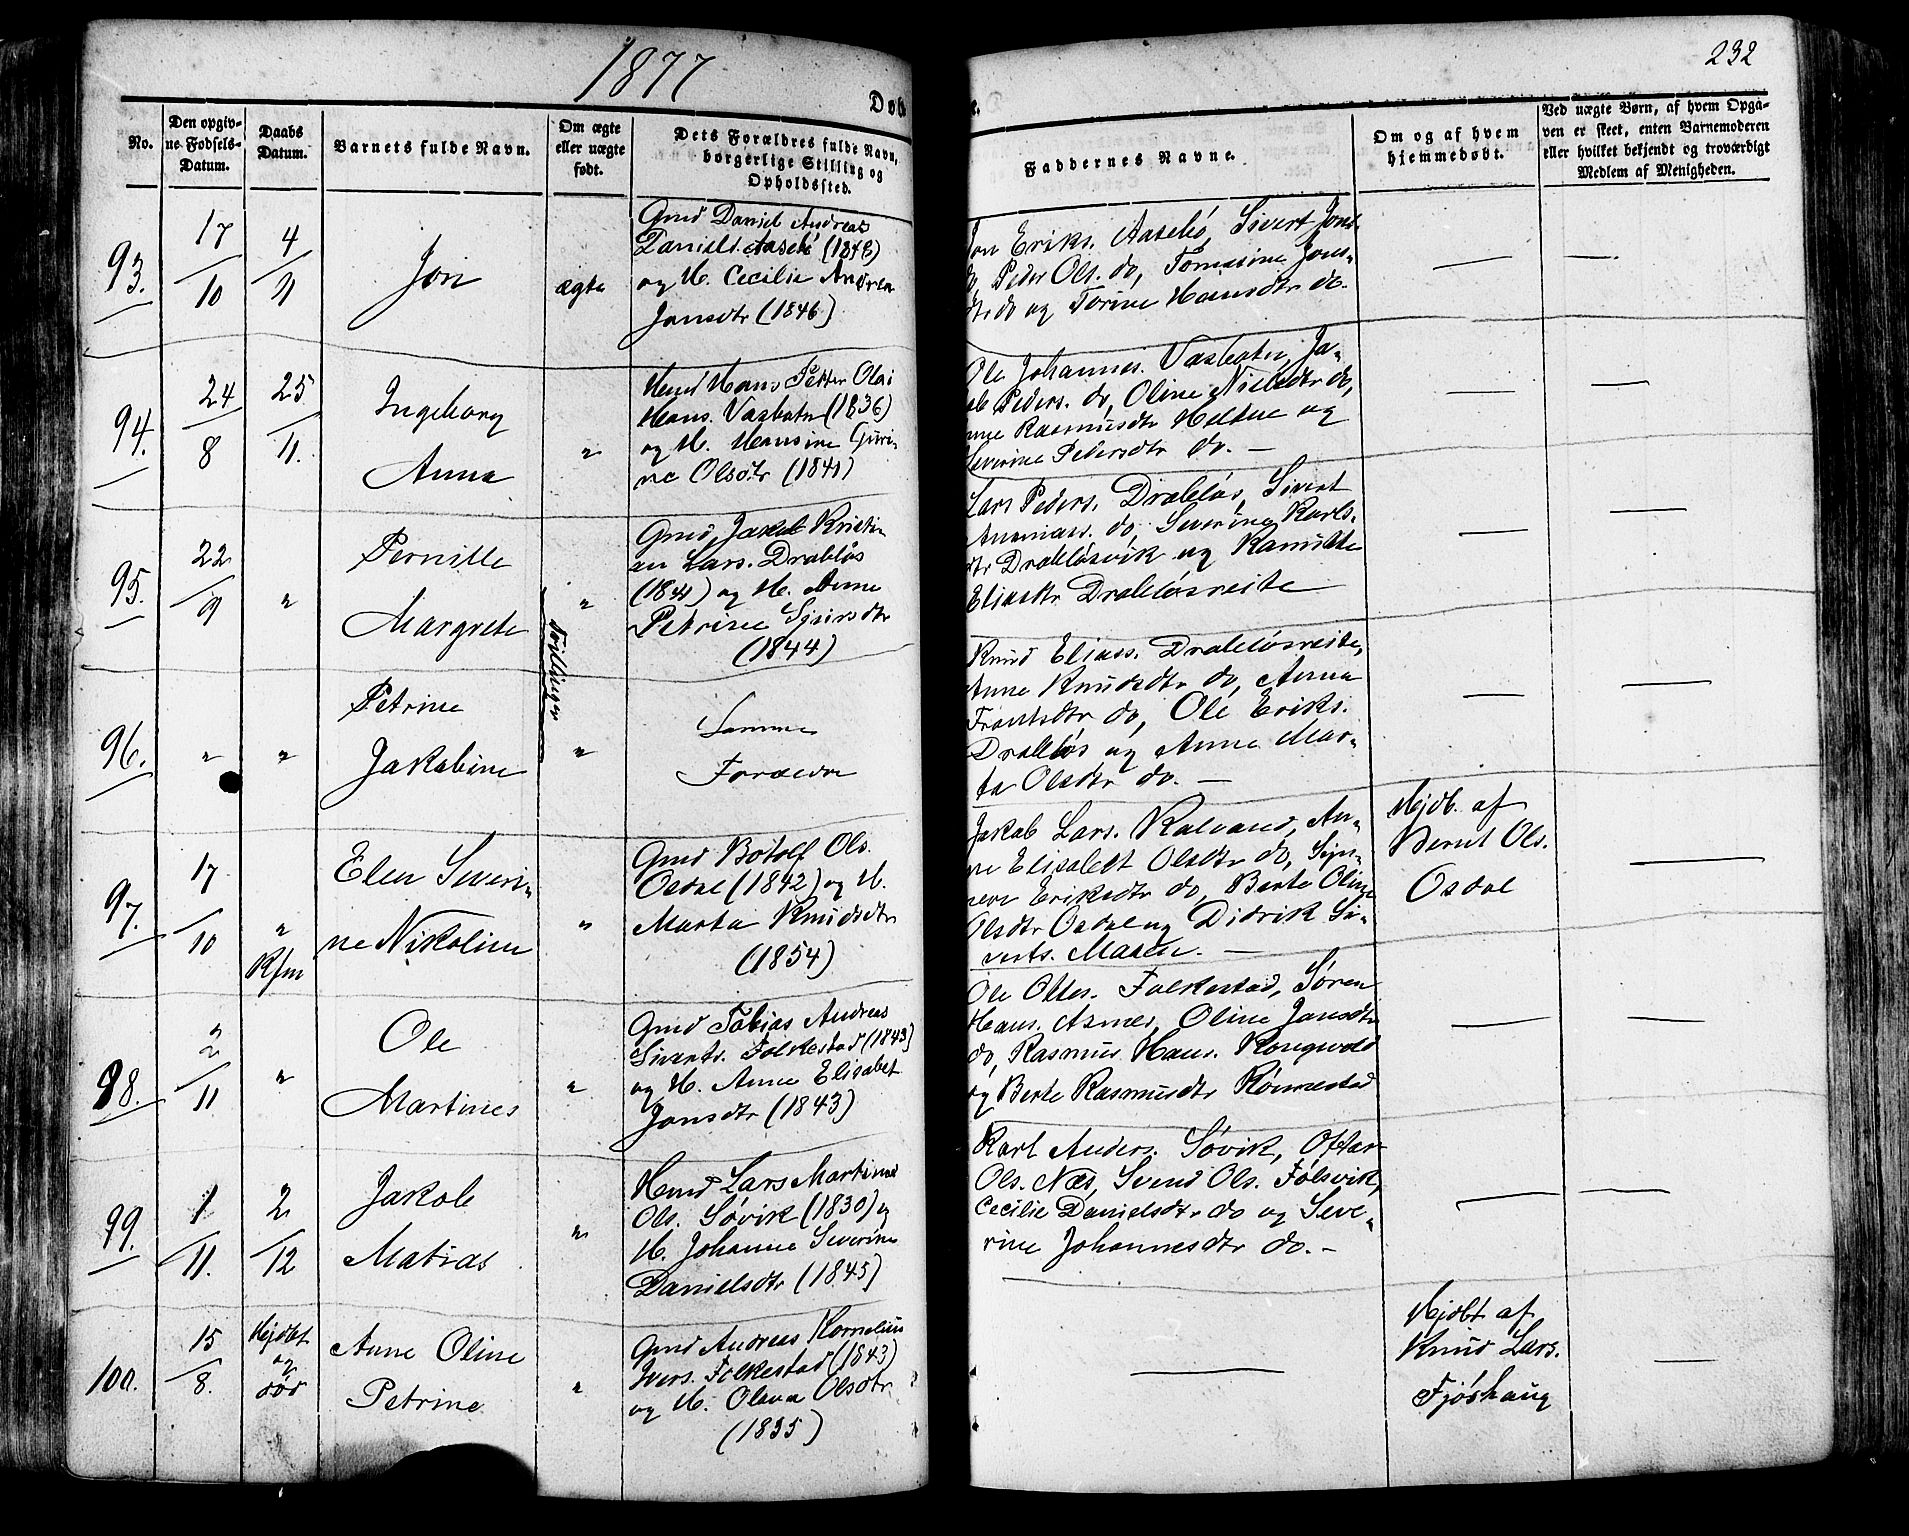 1877
232
Døb
e.
No.
Den opgiv-
ne Fødsels-
Datum.
Daabs
Datum.
Barnets fulde Navn.
Om ægte
eller uægte
født.
Dets Forældres fulde Navn,
borgerlige Stilling og
Opholdssted.
Faddernes Navne.
Om og af hvem
hjemmedøbt.
Ved uægte Børn, af hvem Opgi-
ven er skeet, enten Barnemoderen
eller hvilket bekjendt og troværdigt
Medlem af Menigheden.
93.
17/10
4/11
Jon
ægte
Gmd Daniel Andreas
Daniels. Aasebö (1848)
og H. Cecilie Andrea
Jonsdtr (1846)
Jon Eriks. Aasebö, Sivert Jons.
do, Peder Ols. do, Tomasine Jons-
dtr do og Torine Hansdtr do.
—
—
94.
24/8
25/11
Ingeborg
Anna
"
Hmd Hans Petter Olai
Hans. Vasbotn (1836)
og H. Hansine Guri-
ne Olsdtr (1841)
Ole Johannes. Vasbotn, Ja-
kob Peders. do, Oline Nielsdtr do,
Anne Rasmusdtr og
Severine Pedersdtr do. —
—
—
95.
22/9
"
Pernille
Margrete
"
Tvillinger
Gmd Jakob Kristi-
an Lars. Drabløs
(1841) og H. Anne
Petrine Sjursdtr
(1844)
Lars Peders. Drabløs, Sivert
Ananias. do, Severine Karls-
dtr Drabløsvik og Kamilla
Eliasdtr Drabløsreite
—
—
96.
"
"
Petrine
Jakobine
"
Samme
Forældre
Knud Elias. Drabløsreite,
Anne Knudsdtr do, Anna
Frantsdtr do, Ole Eriks.
Drabløs og Anne Mar-
ta Olsdtr do. —
—
—
97.
17/10
"
Kfm
Elen Severi-
ne Nikoline
"
Gmd Botolf Ols.
Osdal (1842) og H.
Marta Knudsdtr
(1854)
Jakob Lars. Kalvand, An-
ne Elisabet Olsdtr do, Syn-
neve Eriksdtr do, Berte Oline
Olsdtr Osdal og Didrik Si-
verts. Maaen. —
Hjdb. af
Bernt Ols.
Osdal
—
98.
2/11
"
Ole
Martines
"
Gmd Tobias Andreas
Siverts. Folkestad (1843)
og H. Anne Elisabet
Jonsdtr (1843)
Ole Ottes. Folkestad, Søren
Hans. Aznes, Oline Jansdtr
do, Rasmus Hans. Kongsvold
og Berte Rasmusdtr Rønnestad
—
—
99.
1/11.
2/12
Jakob
Matias
"
Hmd Lars Martinus
Ols. Søvik (1830) og
H. Johanne Severine
Danielsdtr (1845)
Karl Anders. Søvik, Oftar
Ols. Næs, Svend Ols. Følsvik,
Cecilie Danielsdtr do og Seve-
rine Johannesdtr do. —
—
—
100.
15/8.
Hjdbt
og
død
Anne Oline
Petrine
"
Gmd Andreas Kornelius
Ivers. Folkestad (1843)
og H. Olava Olsdtr
(1835)
—
Hjdbt af
Knud Lars.
Fjøshaug
—